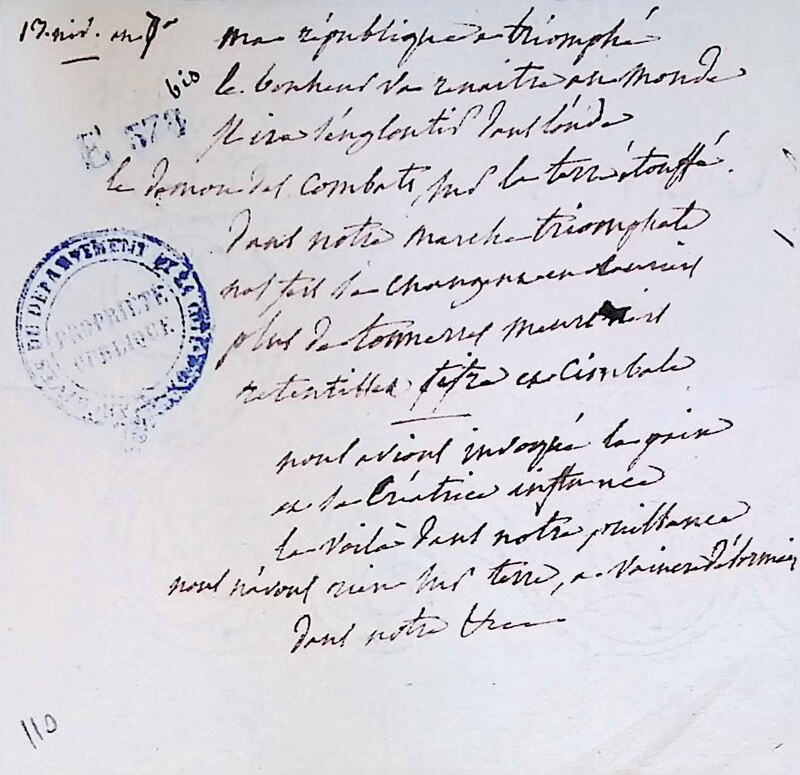 13. niv. an 7e
ma république a triomphé
bis
le bonheur va renaitre au monde
E 572
il ira s'engloutir dans l'onde
le demon des combats, sur la terre étouffé.
dans notre marche triomphale
nos fers se changent en lauriers
plus de tonnerres meurtriers
retentissez fifre et cimbale
nous avions invoqué la paix
et sa créatrice influence
la voilà dans notre puissance
nous n'avons rien sur terre, a vaincre désormais
dans notre
ARCHIVES DU DEPARTEMENT DE LA
PROPRIÉTÉ PUBLIQUE
110